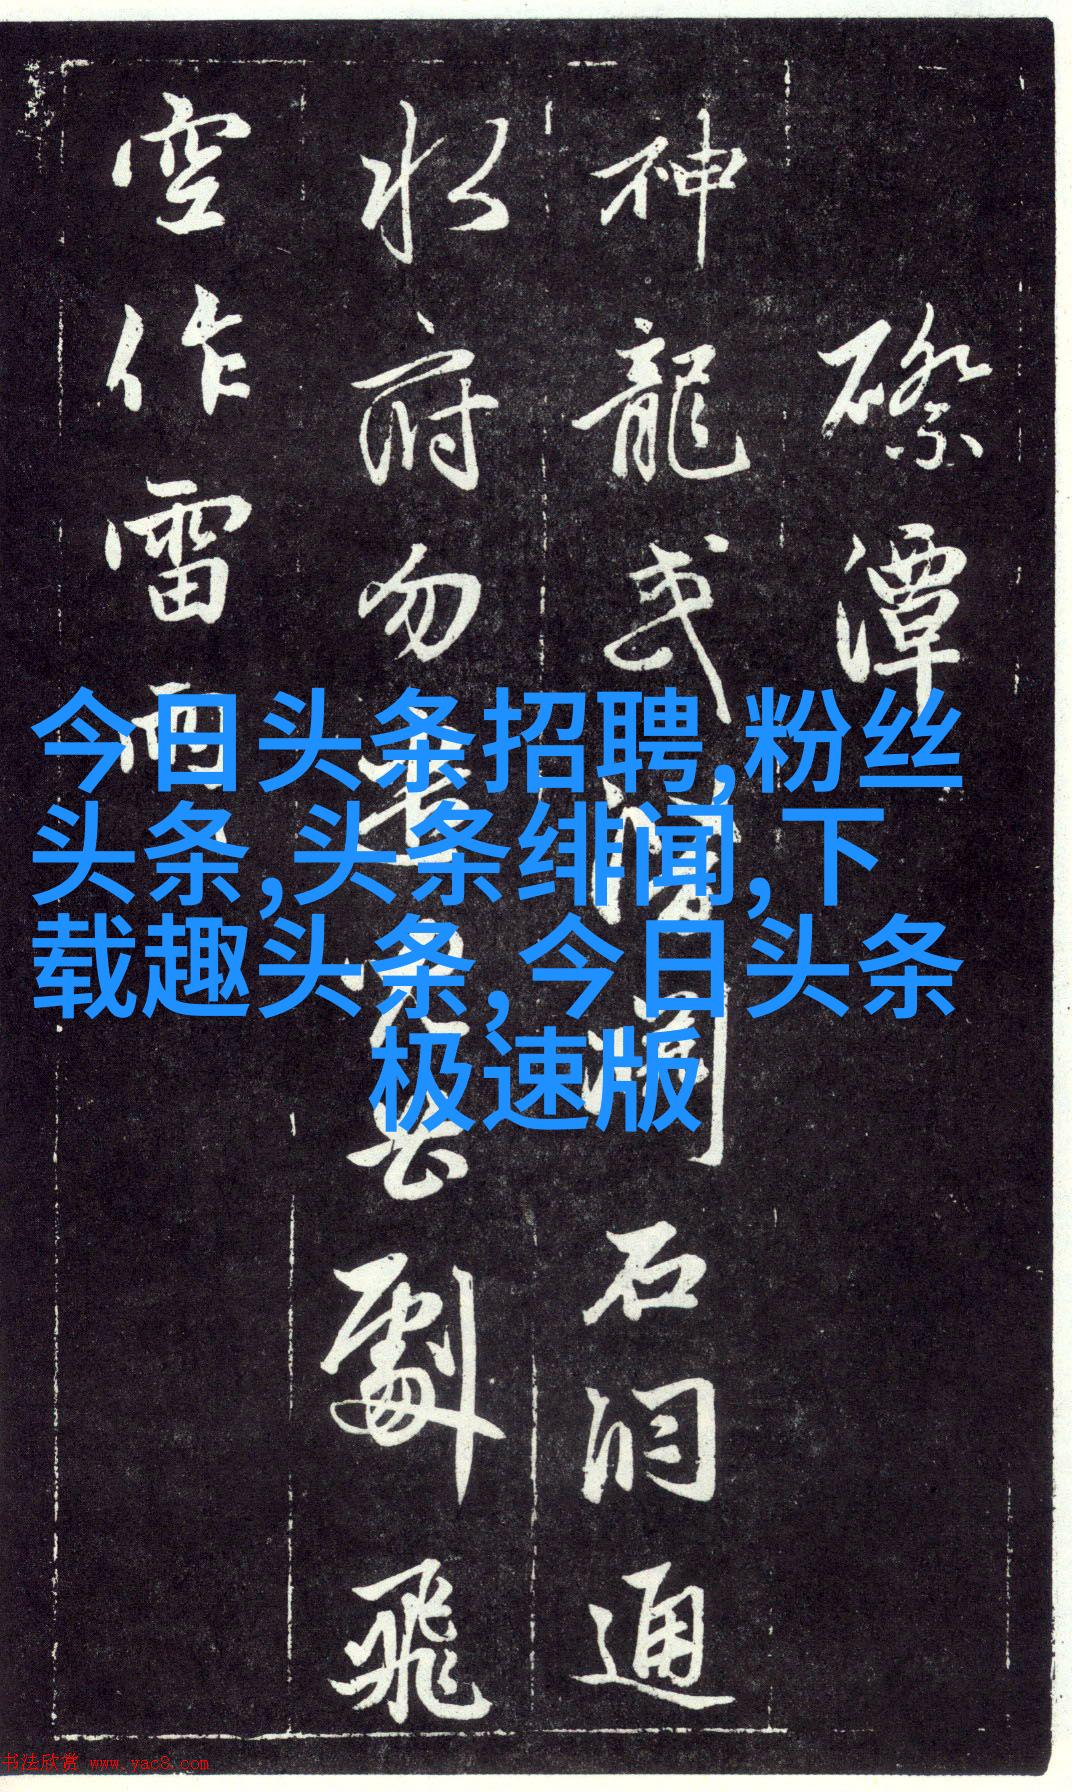 磜潭
神龍或潛澗石洞通
水府勿
劇飛
空作雷雨
今日头条招聘,粉丝
头条,头条绯闻,下
载趣头条, 今日头条
极速版
书法欣赏 www.yac8.com